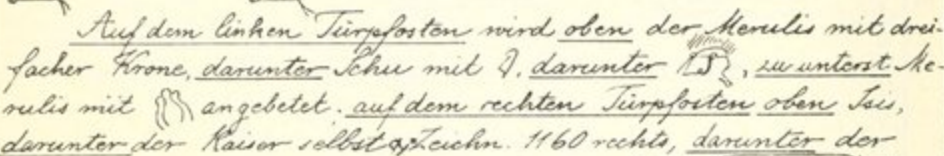 Auf dem linken Türpfosten wird oben der Merulis mit drei-
facher Krone, darunter Schu mit, darunter, zu unterst Me-
rulis mit angebetet. auf dem rechten Türpfosten oben Isis,
darunter der Kaiser selbst Zeichn. 1160 rechts, darunter der